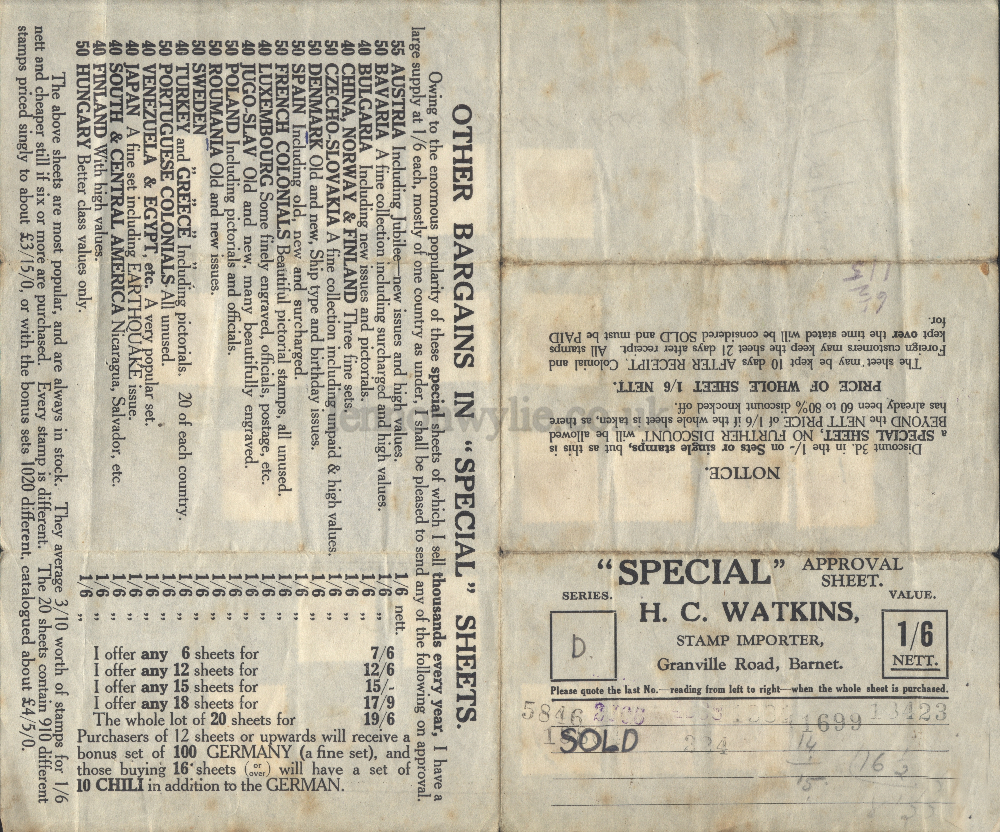 OTHER BARGAINS IN "SPECIAL" SHEETS.
Owing to the enormous popularity of these special sheets of which I sell thousands every year, I have a
large supply at 1/6 each, mostly of one country as under, I shall be pleased to send any of the following on approval.
55 AUSTRIA Including Jubilee—new issues and high values. 1/6 nett.
50 BAVARIA A fine collection including surcharged and high values. 1/6 "
40 BULGARIA Including new issues and pictorials. 1/6 "
40 CHINA, NORWAY & FINLAND Three fine sets. 1/6 "
50 CZECHO-SLOVAKIA A fine collection including unpaid & high values. 1/6 "
50 DENMARK Old and new, Ship type and birthday issues. 1/6 "
50 SPAIN Including old, new and surcharged. 1/6 "
50 FRENCH COLONIALS Beautiful pictorial stamps, all unused. 1/6 "
40 LUXEMBOURG Some finely engraved, officials, postage, etc. 1/6 "
40 JUGO-SLAV Old and new, many beautifully engraved. 1/6 "
50 POLAND Including pictorials and officials. 1/6 "
50 ROUMANIA Old and new issues. 1/6 "
50 SWEDEN " " " 1/6 "
40 TURKEY and GREECE Including pictorials. 20 of each country. 1/6 "
50 PORTUGUESE COLONIALS All unused. 1/6 "
40 VENEZUELA & EGYPT, etc. A very popular set. 1/6 "
40 JAPAN A fine set including EARTHQUAKE issue. 1/6 "
40 SOUTH & CENTRAL AMERICA Nicaragua, Salvador, etc. 1/6 "
40 FINLAND With high values. 1/6 "
50 HUNGARY Better class values only. 1/6 "
I offer any 6 sheets for 7/6
I offer any 12 sheets for 12/6
I offer any 15 sheets for 15/-
I offer any 18 sheets for 17/9
The whole lot of 20 sheets for 19/6
Purchasers of 12 sheets or upwards will receive a
bonus set of 100 GERMANY (a fine set), and
those buying 16 sheets (or over) will have a set of
10 CHILI in addition to the GERMAN.
The above sheets are most popular, and are always in stock. They average 3/10 worth of stamps for 1/6
nett and cheaper still if six or more are purchased. Every stamp is different. The 20 sheets contain 910 different
stamps priced singly to about £3/15/0, or with the bonus sets 1020 different, catalogued about £4/5/0.
NOTICE.
Discount 3d. in the 1/- on Sets or single stamps, but as this is
a SPECIAL SHEET, NO FURTHER DISCOUNT will be allowed
BEYOND the NETT PRICE of 1/6 if the whole sheet is taken, as there
has already been 60 to 80% discount knocked off.
PRICE OF WHOLE SHEET 1/6 NETT.
The sheet may be kept 10 days AFTER RECEIPT. Colonial and
Foreign customers may keep the sheet 21 days after receipt. All stamps
kept over the time stated will be considered SOLD and must be PAID
for.
"SPECIAL" APPROVAL SHEET.
SERIES.
D.
H. C. WATKINS,
STAMP IMPORTER,
Granville Road, Barnet.
VALUE.
1/6
NETT.
Please quote the last No.—reading from left to right—when the whole sheet is purchased.
5846 1699 13423
SOLD 324
14
15